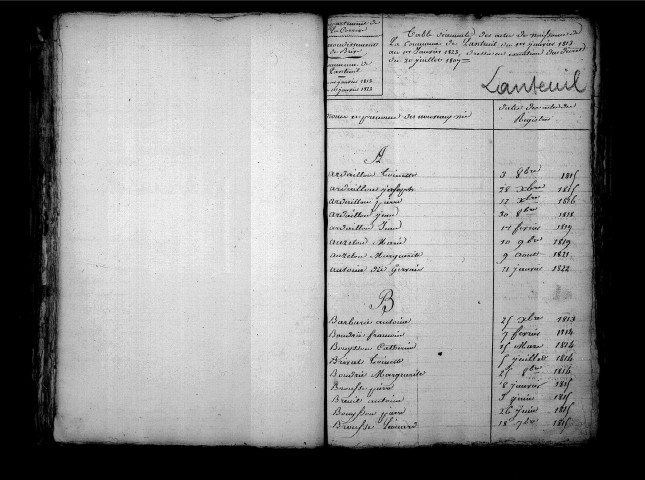 Département de
La Corrèze
arrondissement
de Brive
Commune de
Lanteuil
1er janvier 1813
1er janvier 1823
Table décennale des actes de naissance de
La Commune de Lanteuil du 1er janvier 1813
au 1er Janvier 1823, dressée en exécution du Décret
du 20 juillet 1807
Lanteuil
Noms et prénoms des nouveaux nés
Dates des actes des
Registres
A
ardaillou Toinette 3 8bre 1815
ardaillou joseph 28 xbre 1815
ardaillou pierre 17 xbre 1816
ardaillou jean 30 8bre 1818
ardaillou Jean 1er fevrier 1819
auzelou Marie 10 9bre 1819
auzelou Marguerite 9 aout 1821
antoine dit Gervais 11 janvier 1822
B
Barbarie antoine 25 xbre 1813
Boudrie francois 7 fevrier 1814
Bouysson Catherine 15 Mars 1814
Breuil Toinette 5 juillet 1814
Boudrie Marguerite 25 8bre 1814
Brousse pierre 8 janvier 1815
Breuil antoine 5 juin 1815
Bouysson pierre 26 juin 1815
Brousse Léonard 18 7bre 1815